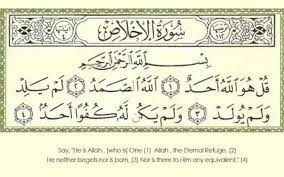 سُورَةُ الْإِخْلَاصِ
بِسْمِ اللَّهِ الرَّحْمَٰنِ الرَّحِيمِ
قُلْ هُوَ اللَّهُ أَحَدٌ ﴿١﴾ اللَّهُ الصَّمَدُ ﴿٢﴾ لَمْ يَلِدْ
وَلَمْ يُولَدْ ﴿٣﴾ وَلَمْ يَكُن لَّهُ كُفُوًا أَحَدٌ ﴿٤﴾
Say, "He is Allah , [who is] One (1) Allah , the Eternal Refuge, (2)
He neither begets nor is born, (3) Nor is there to Him any equivalent." (4)